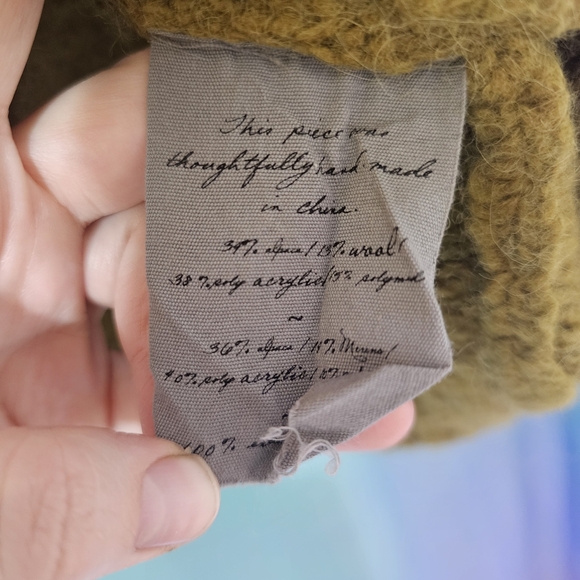 This piece was
thoughtfully hand made
in china.
34% alpaca / 13% wool /
38% poly acrylic /
~
36% alpaca / Merino /
40% poly acrylic /
100%